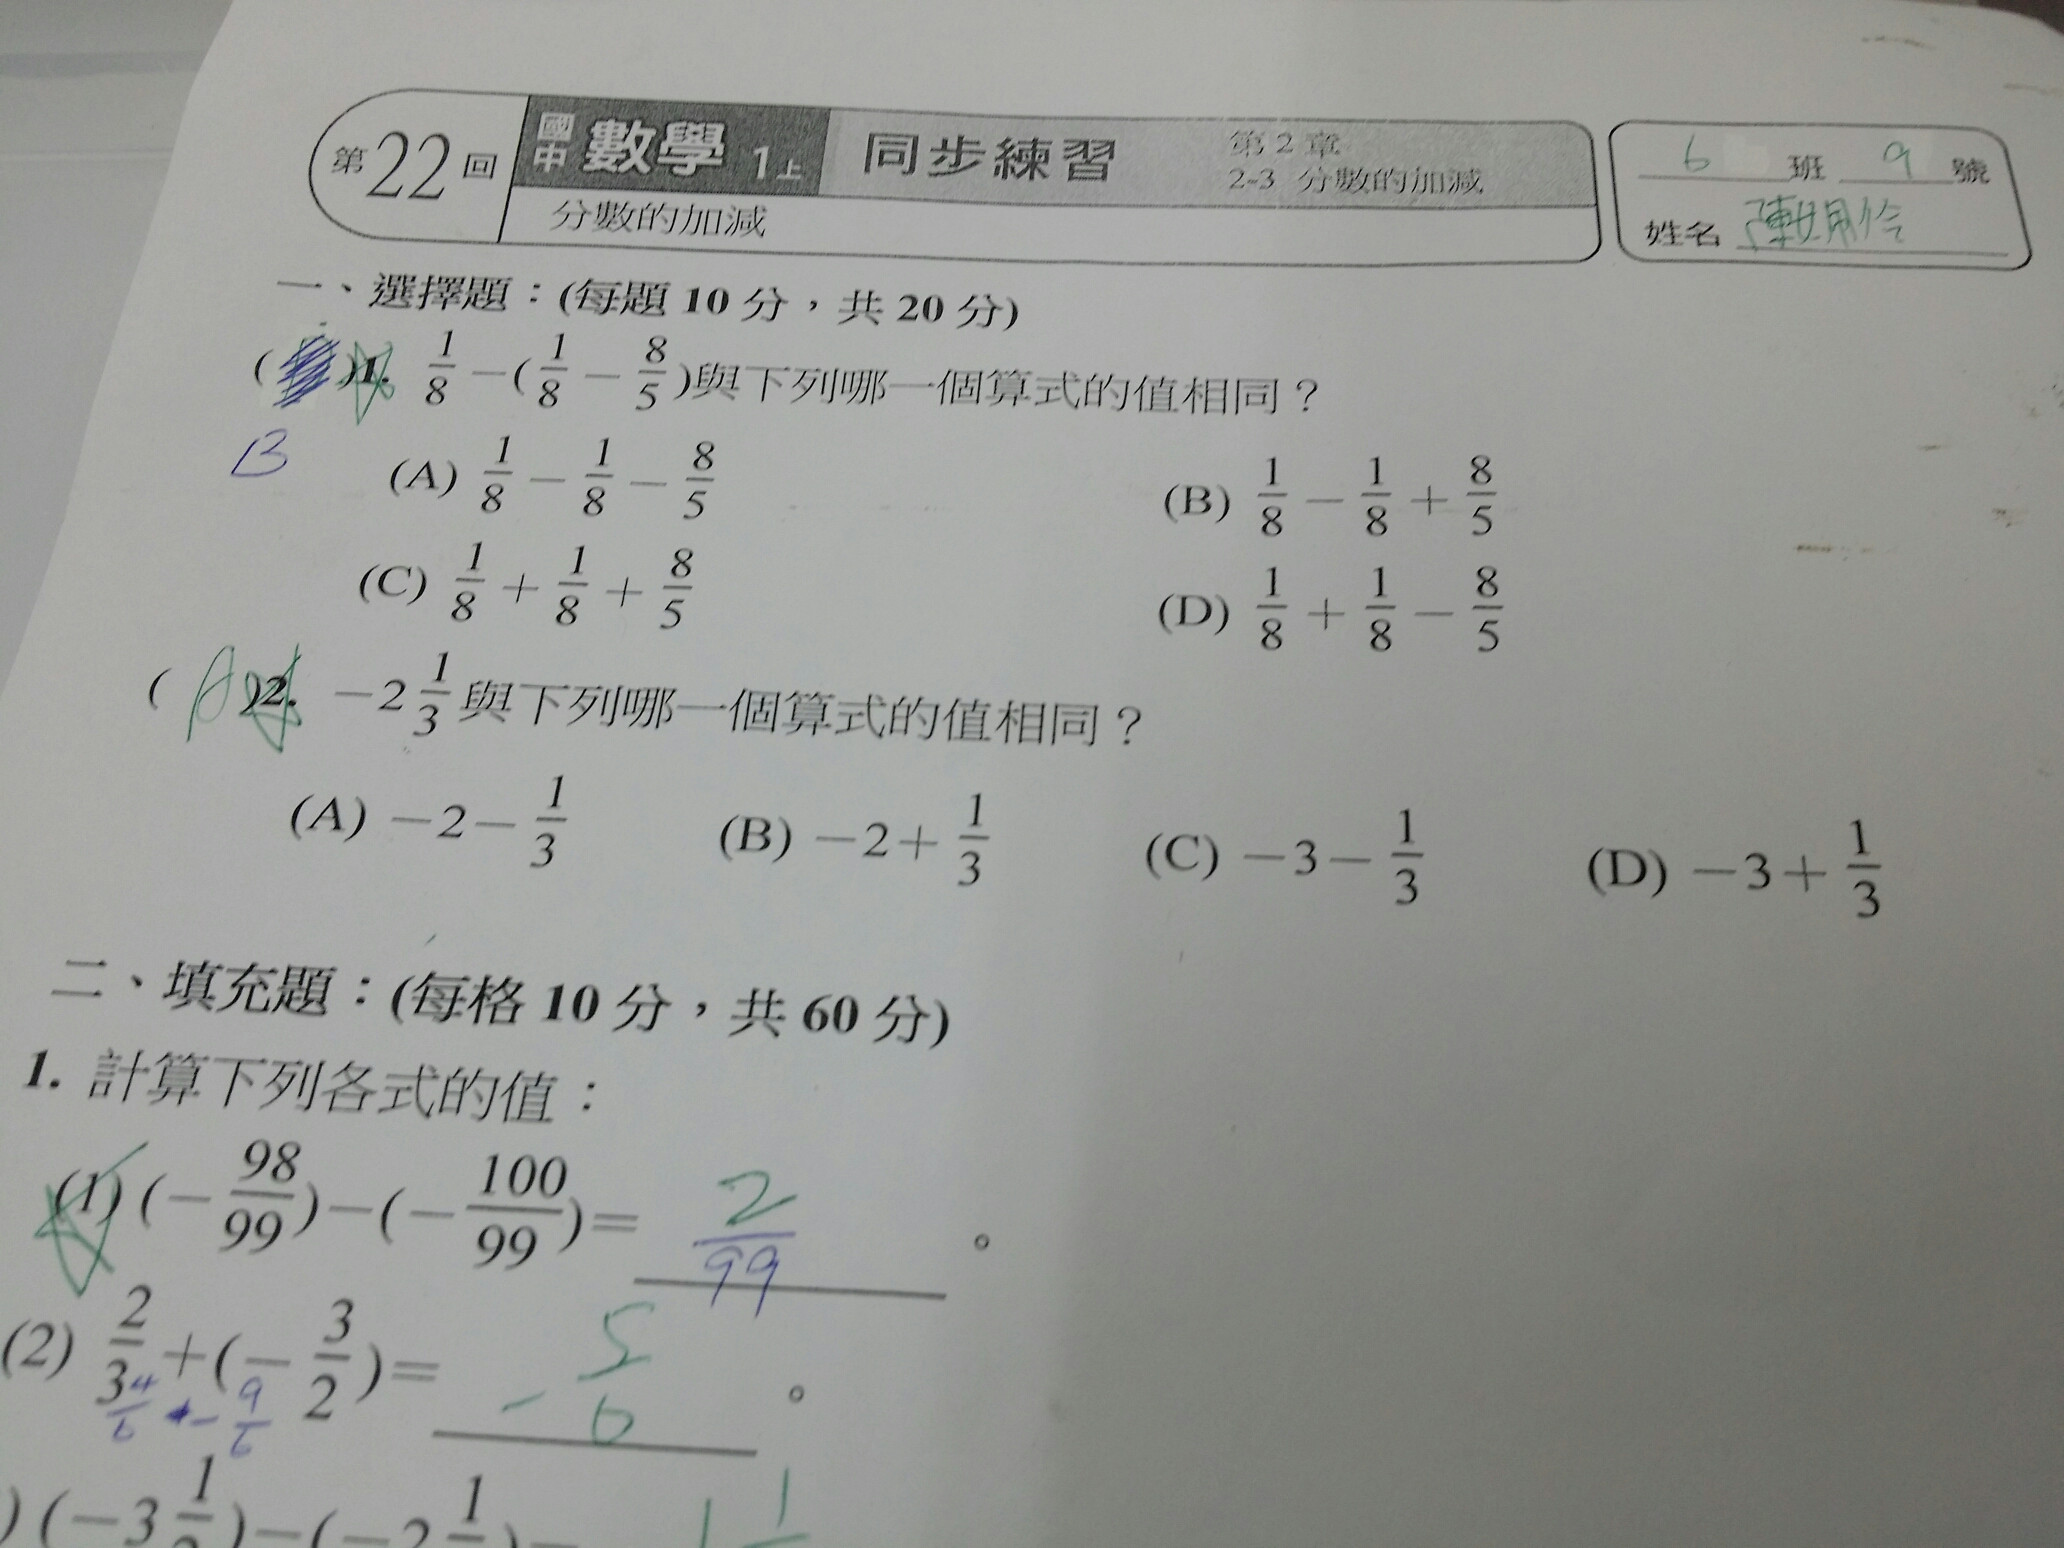 第22回 國中 數學 1上 同步練習 第2章
2-3 分數的加減
分數的加減
6班 9號
姓名
一、選擇題：(每題10分，共20分)
( )1. 1/8－(1/8－8/5)與下列哪一個算式的值相同？
B
(A) 1/8－1/8－8/5 (B) 1/8－1/8＋8/5
(C) 1/8＋1/8＋8/5 (D) 1/8＋1/8－8/5
(A)2. －2 1/3 與下列哪一個算式的值相同？
(A) －2－1/3 (B) －2＋1/3 (C) －3－1/3 (D) －3＋1/3
二、填充題：(每格10分，共60分)
1. 計算下列各式的值：
(1) (－98/99)－(－100/99)＝ 2/99 。
(2) 2/3＋(－3/2)＝ －5/6 。
4/6 － 9/6